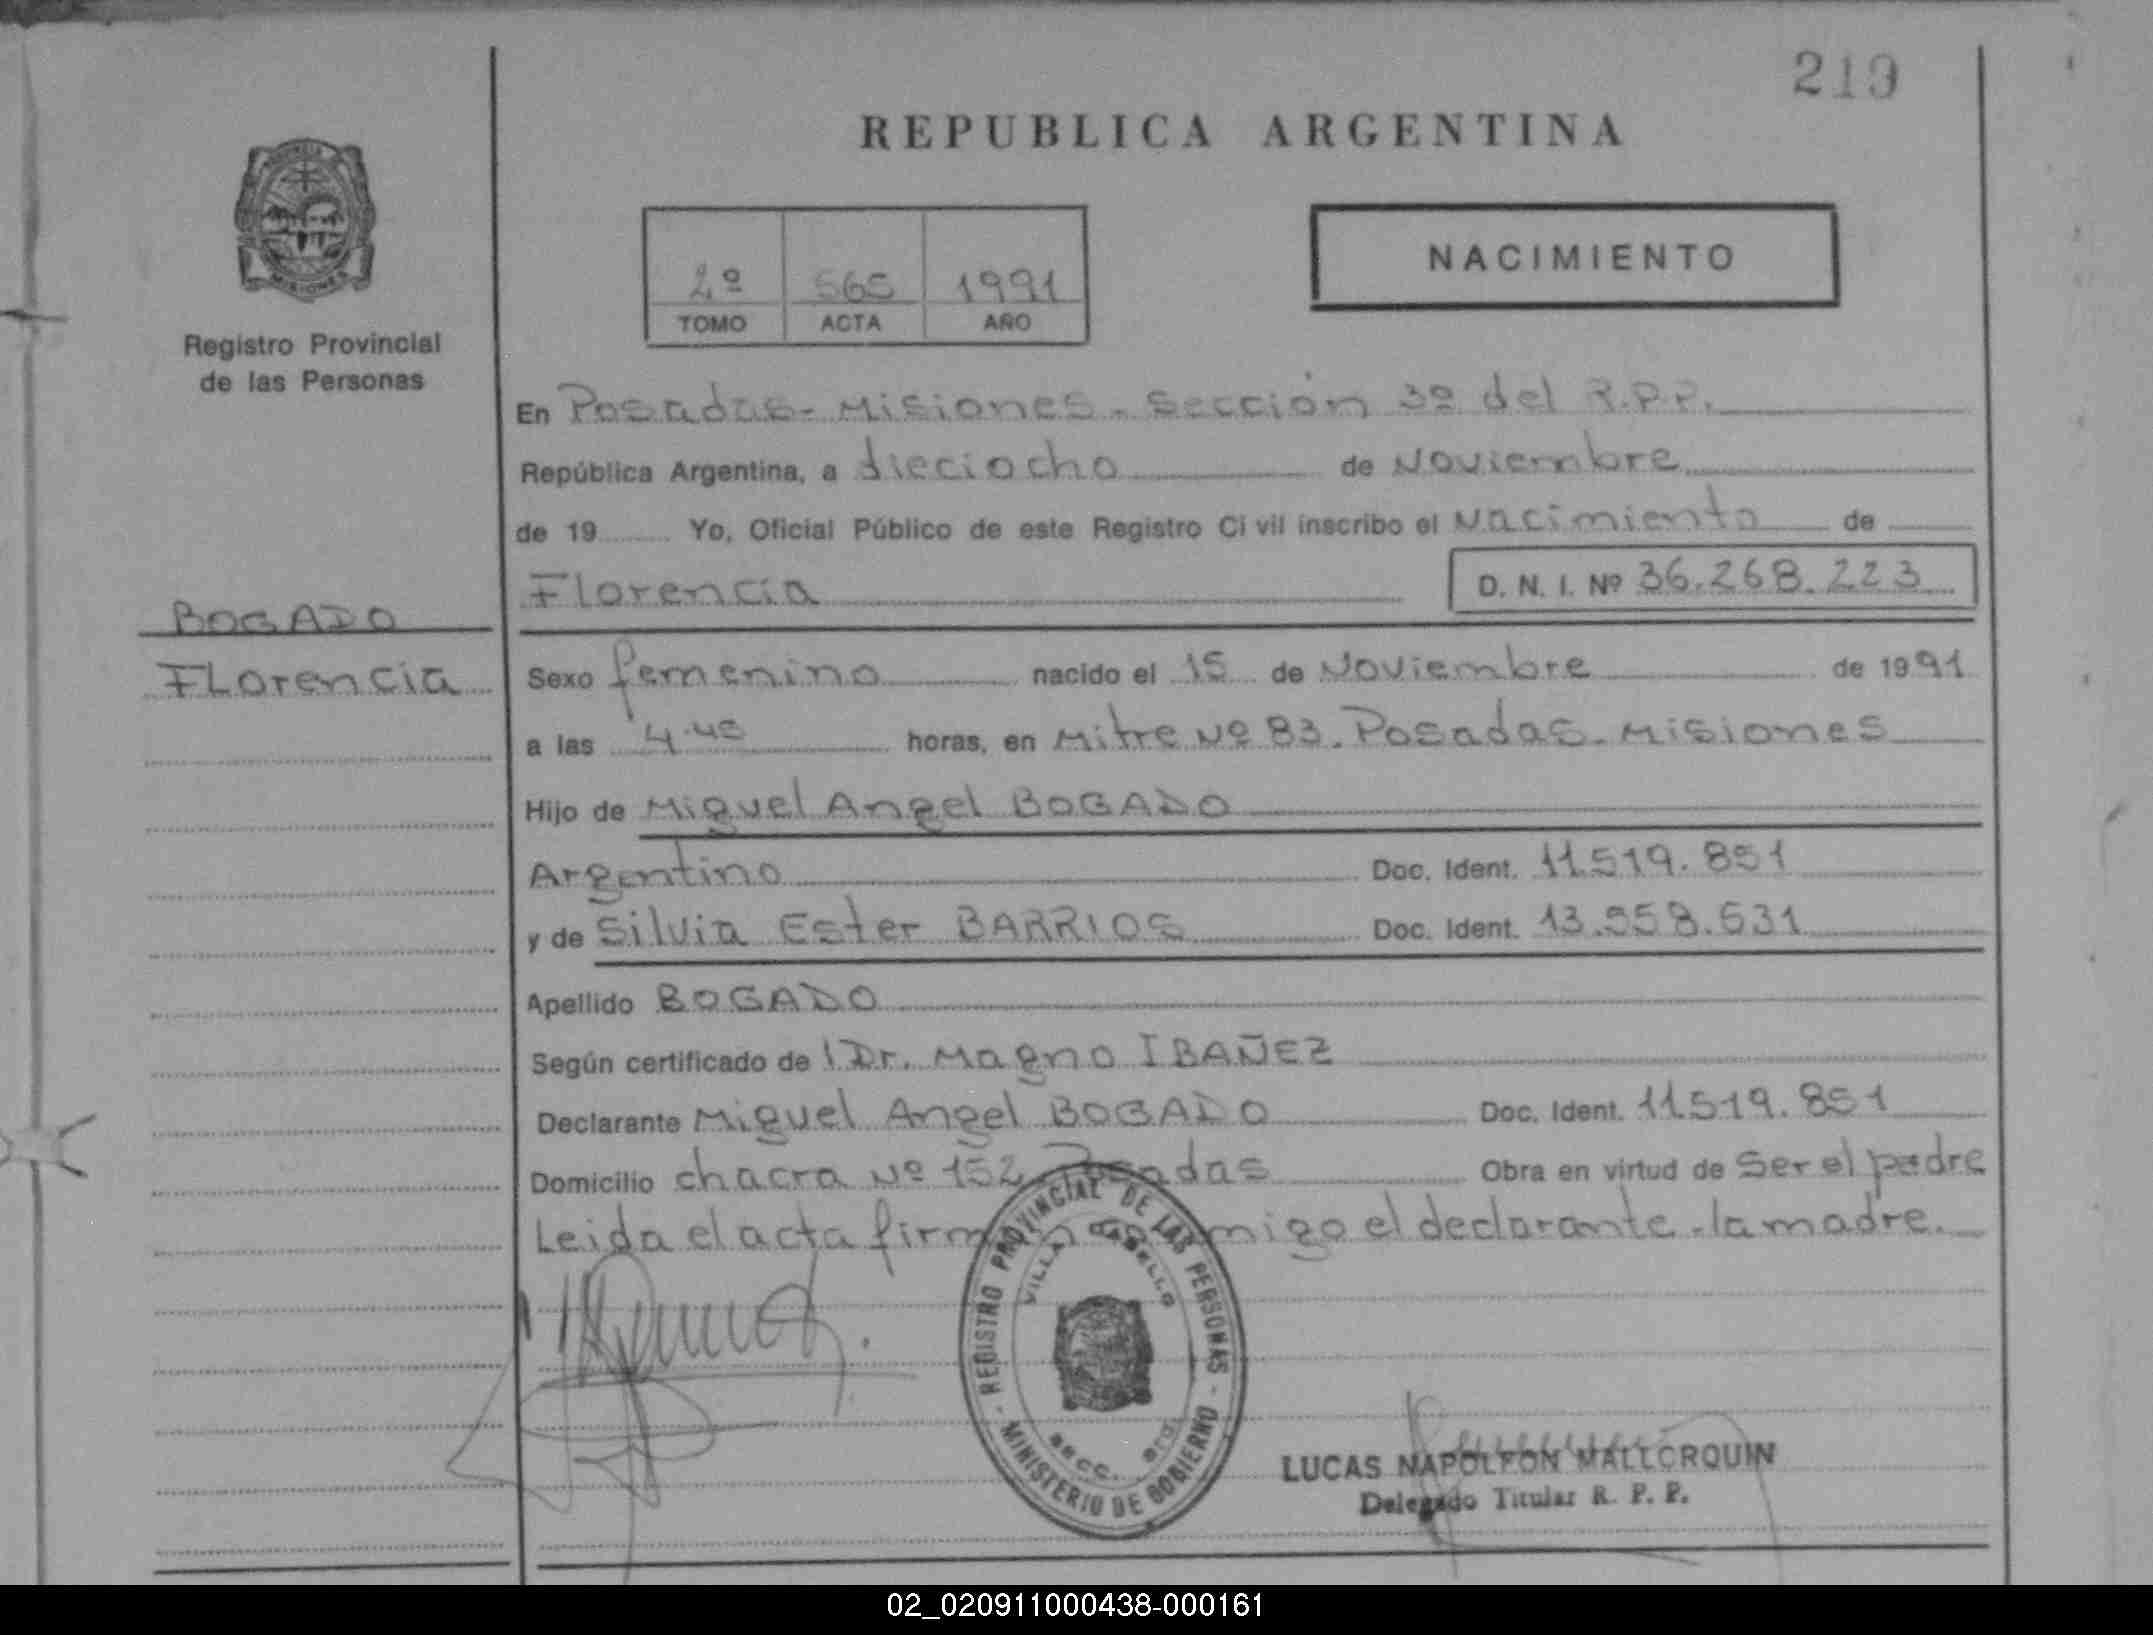 219
REPUBLICA ARGENTINA
PROVINCIA DE
MISIONES
Registro Provincial
de las Personas
2º 565 1991
TOMO ACTA AÑO
NACIMIENTO
En Posadas - Misiones - Sección 3º del R.P.P.
República Argentina, a dieciocho de Noviembre
de 19 Yo, Oficial Público de este Registro Civil inscribo el Nacimiento de
Florencia D. N. I. Nº 36.268.223
BOGADO
Florencia
Sexo femenino nacido el 15 de Noviembre de 1991
a las 4.45 horas, en Mitre Nº 83. Posadas - Misiones
Hijo de Miguel Angel BOGADO
Argentino Doc. Ident. 11.519.851
y de Silvia Ester BARRIOS Doc. Ident. 13.558.631
Apellido BOGADO
Según certificado de Dr. Magno IBAÑEZ
Declarante Miguel Angel BOGADO Doc. Ident. 11.519.851
Domicilio chacra Nº 152 Posadas Obra en virtud de Ser el padre
Leida el acta firman conmigo el declarante - la madre.
REGISTRO PROVINCIAL DE LAS PERSONAS - MINISTERIO DE GOBIERNO -
VILLA CABELLO
secc. 3ra.
LUCAS NAPOLEON MALLORQUIN
Delegado Titular R. P. P.
02_020911000438-000161